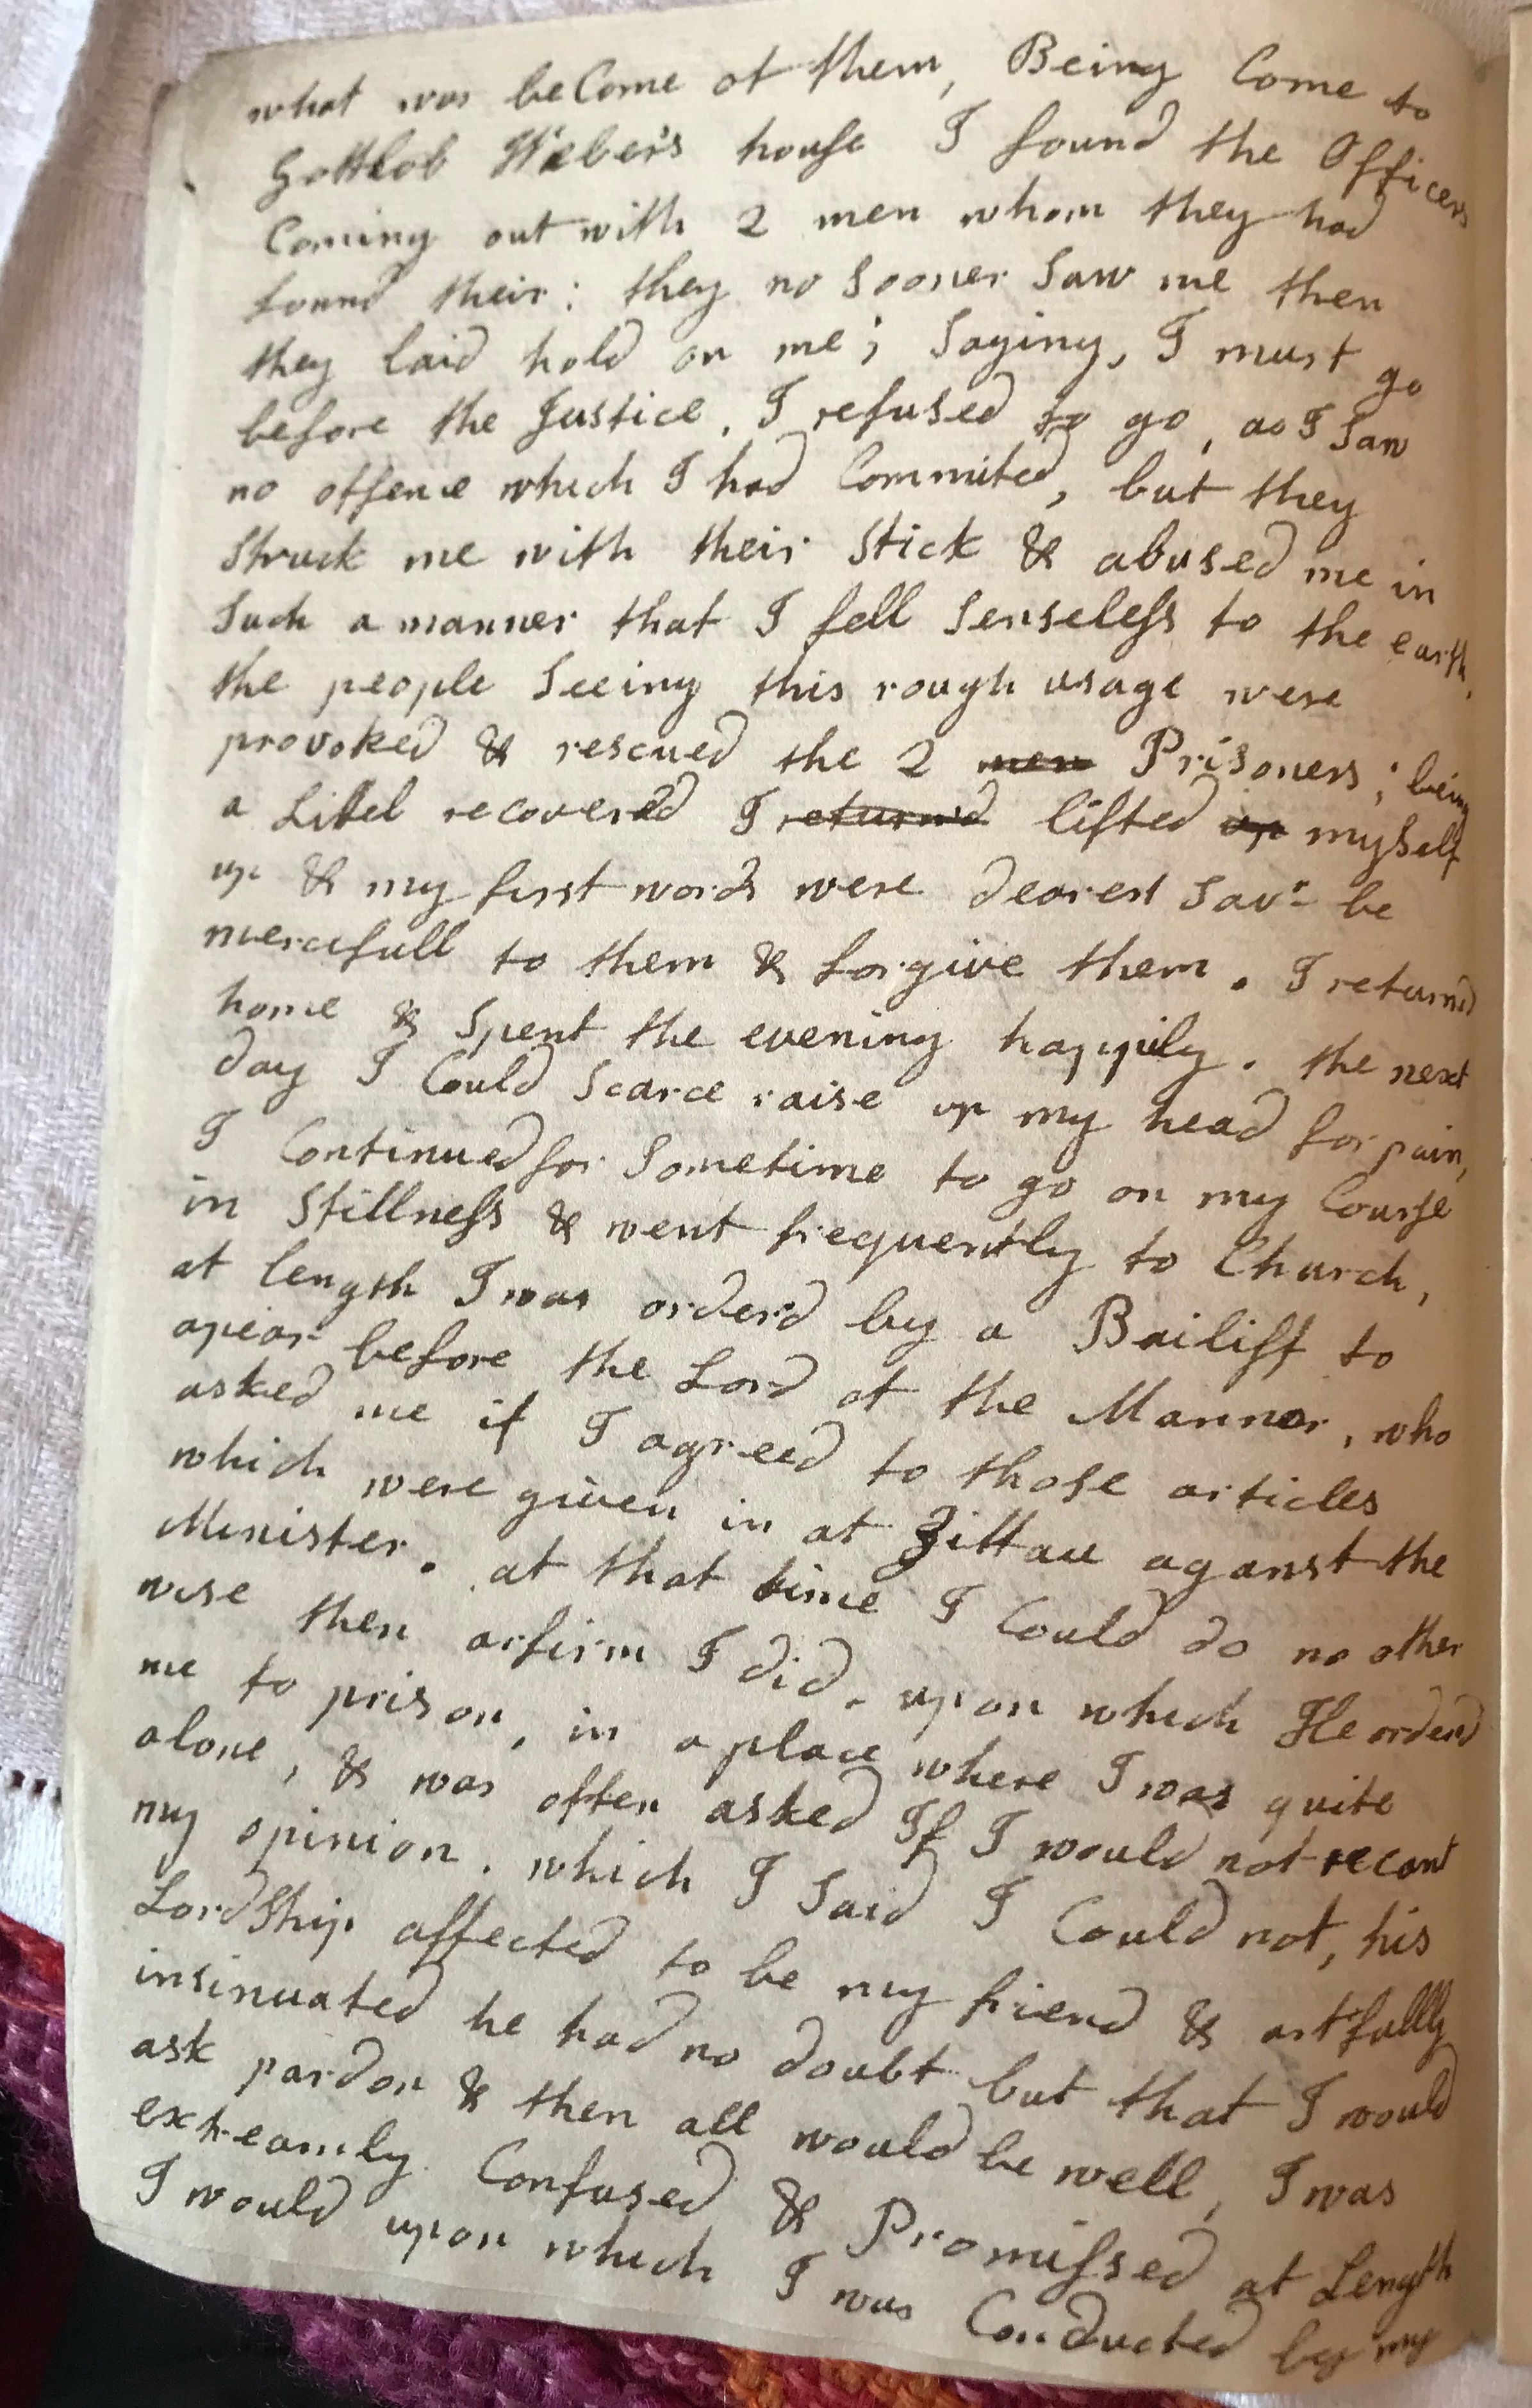 what was beCome of them, Being Come to
Gottlob Weber's house I found the Officers
Coming out with 2 men whom they had
found their: they no Sooner Saw me then
they laid hold on me; Saying, I must go
before the Justice. I refused to go, as I Saw
no offence which I had Commited, but they
Struck me with their Stick & abused me in
Such a manner that I fell Senseless to the earth,
the people Seeing this rough usage were
provoked & rescued the 2 men Prisoners; being
a Littel recovered I returned lifted up myself
up & my first words were dearest Savr be
mercifull to them & forgive them. I returnd
home & Spent the evening happily. the next
day I Could Scarce raise up my head for pain,
I Continued for Sometime to go on my Course
in Stillness & went frequently to Church,
at length I was orderd by a Bailiff to
apear before the Lord of the Mannor, who
asked me if I agreed to those articles
which were given in at Zittau aganst the
Minister. at that time I Could do no other
wise then arfirm I did. upon which He orderd
me to prison, in a place where I was quite
alone, & was often asked If I would not recant
my opinion. which I Said I Could not, his
LordShip affected to be my friend & artfully
insinuated he had no doubt but that I would
ask pardon & then all would be well, I was
extreamly Confused & Promissed at Length
I would upon which I was Conducted by my